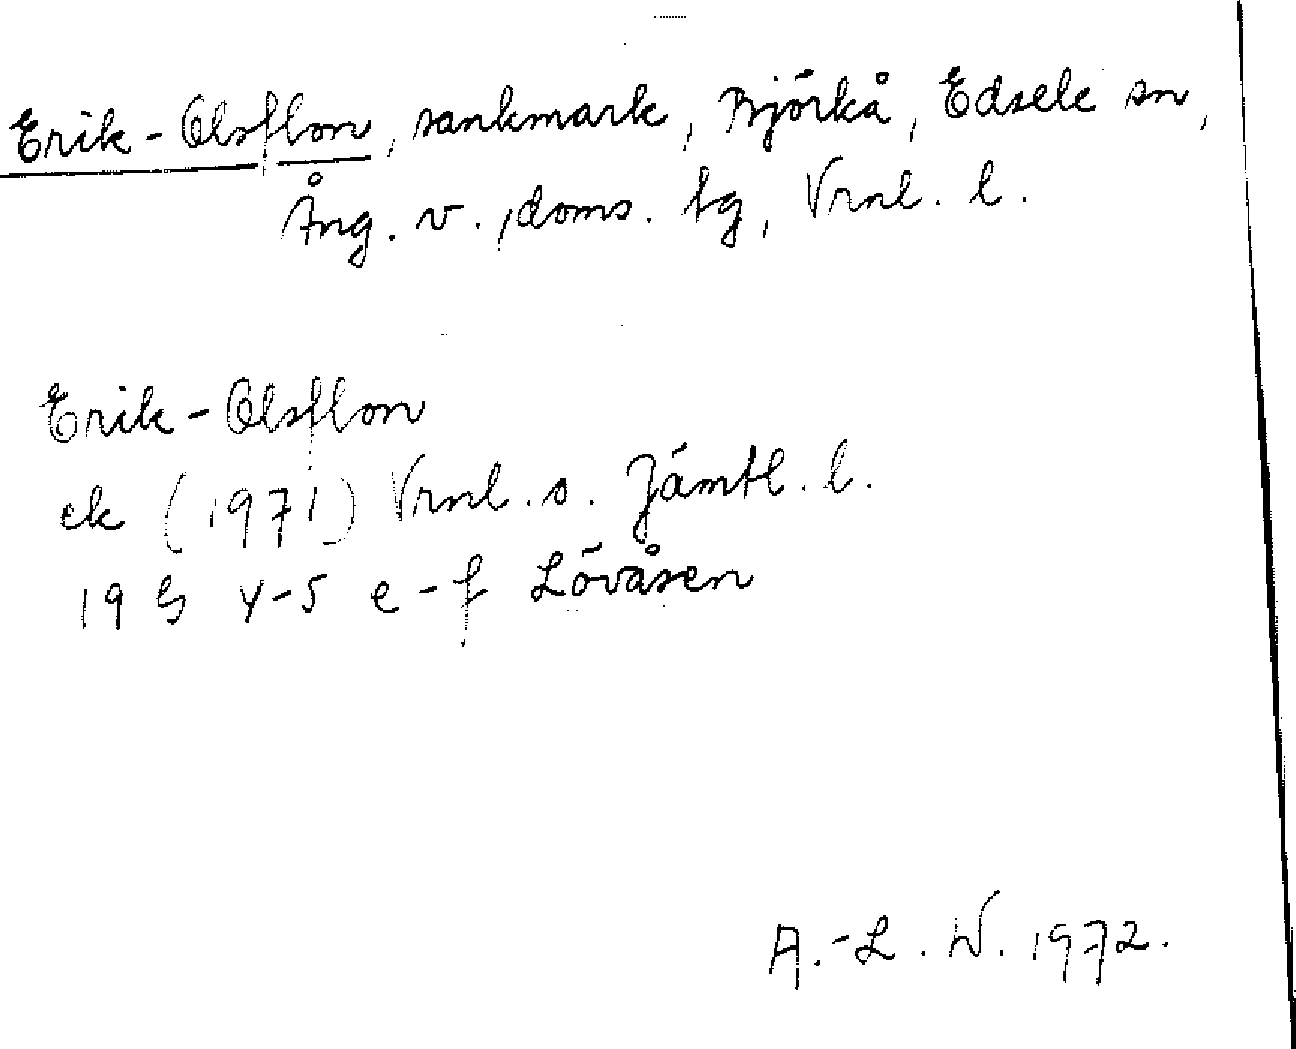 Erik-Olsflon, sankmark, Björkå, Edsele sn,
Ång. v., doms. tg, Vrnl. l.
Erik-Olsflon
ek (1971) Vrnl. s. Jämtl. l.
19 G y-5 e-f Lövåsen
A.-L. W. 1972.